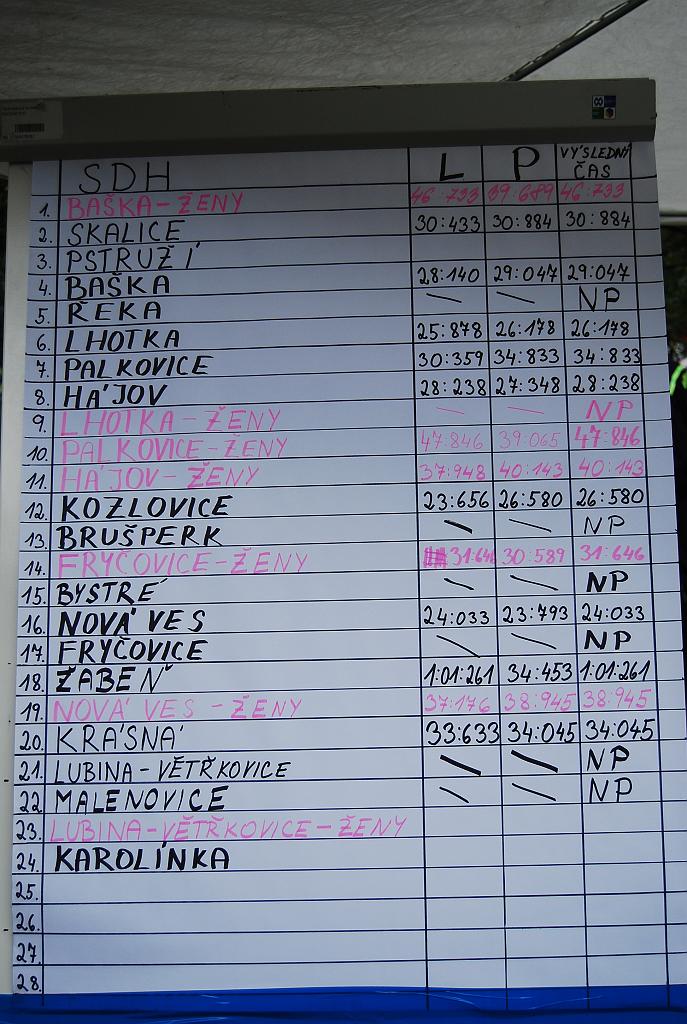 SDH L P VÝSLEDNÝ ČAS
1. BAŠKA-ŽENY 46:733 39:689 46:733
2. SKALICE 30:433 30:884 30:884
3. PSTRUŽÍ
4. BAŠKA 28:140 29:047 29:047
5. ŘEKA — — NP
6. LHOTKA 25:878 26:178 26:178
7. PALKOVICE 30:359 34:833 34:833
8. HÁJOV 28:238 27:348 28:238
9. LHOTKA-ŽENY — — NP
10. PALKOVICE-ŽENY 47:846 39:065 47:846
11. HÁJOV-ŽENY 37:948 40:143 40:143
12. KOZLOVICE 23:656 26:580 26:580
13. BRUŠPERK — — NP
14. FRYČOVICE-ŽENY 31:646 30:589 31:646
15. BYSTRÉ — — NP
16. NOVÁ VES 24:033 23:793 24:033
17. FRYČOVICE — — NP
18. ŽABEŇ 1:01:261 34:453 1:01:261
19. NOVÁ VES - ŽENY 37:176 38:945 38:945
20. KRÁSNÁ 33:633 34:045 34:045
21. LUBINA-VĚTŘKOVICE — — NP
22 MALENOVICE — — NP
23. LUBINA-VĚTŘKOVICE-ŽENY
24. KAROLÍNKA
25.
26.
27.
28.